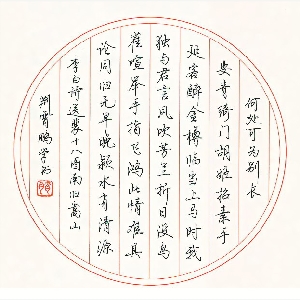 何处可为别长
安青绮门胡姬招素手
延客醉金樽临当上马时我
独与君言风吹芳兰折日没鸟
雀喧举手指飞鸿此情难具
论同归无早晚颍水有清源
李白诗送裴十八图南归嵩山
荆霄鹏学书